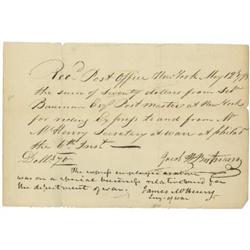 Rec.d Post Office New York May 12
the sum of seventy dollars from Seb
Bauman Esqr Post master at New York
for riding Express to and from Mr
McHenry Secretary at war at Philad
the 6th Inst
Doll.s 70 Jacob
The express employed as above
was on a special business relative to
the department of war.
James McHenry
Secy of war